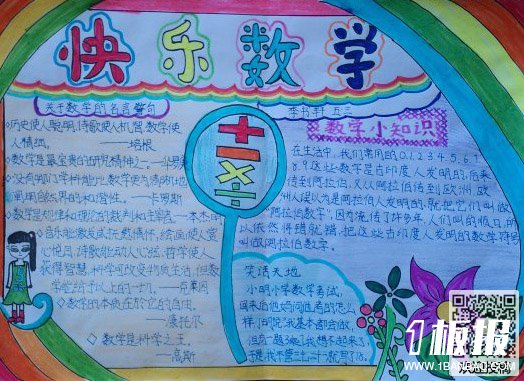 快乐数学
关于数学的名言警句
历史使人聪明,诗歌使人机智,数学使
人精细。 ——培根
数学是最宝贵的研究精神之一。——华罗庚
没有哪门学科能比数学更为清晰地
阐明自然界的和谐性。——卡罗斯
数学是规律和理论的裁判和主宰者——本杰明
音乐能激发或抚慰情怀,绘画使人赏
心悦目,诗歌能动人心弦,哲学使人
获得智慧,科学可改善物质生活,但数
学能给予以上的一切。——克莱因
数学的本质在於它的自由。
——康托尔
数学是科学之王。
——高斯
+ - × ÷
李书轩 五三
数学小知识
在生活中,我们常用的0.1.2.3.4.5.6.7.
8.9这些数字是古印度人发明的,后来
传到阿拉伯,又从阿拉伯传到欧洲,欧
洲人误以为是阿拉伯人发明的,就把它们叫做
“阿拉伯数字”,因为流传了许多年,人们叫的顺口,所
以依然将错就错,把这些古印度人发明的数字符号
叫做阿拉伯数字。
笑话天地
小明小学数学考试,
回来后他妈问他考的怎么
样,小明说“我基本都会做,
但有一题3乘7我想不起来了,
于是我不管三七二十一就写了18。
1板报
WWW.1BANBAO.COM